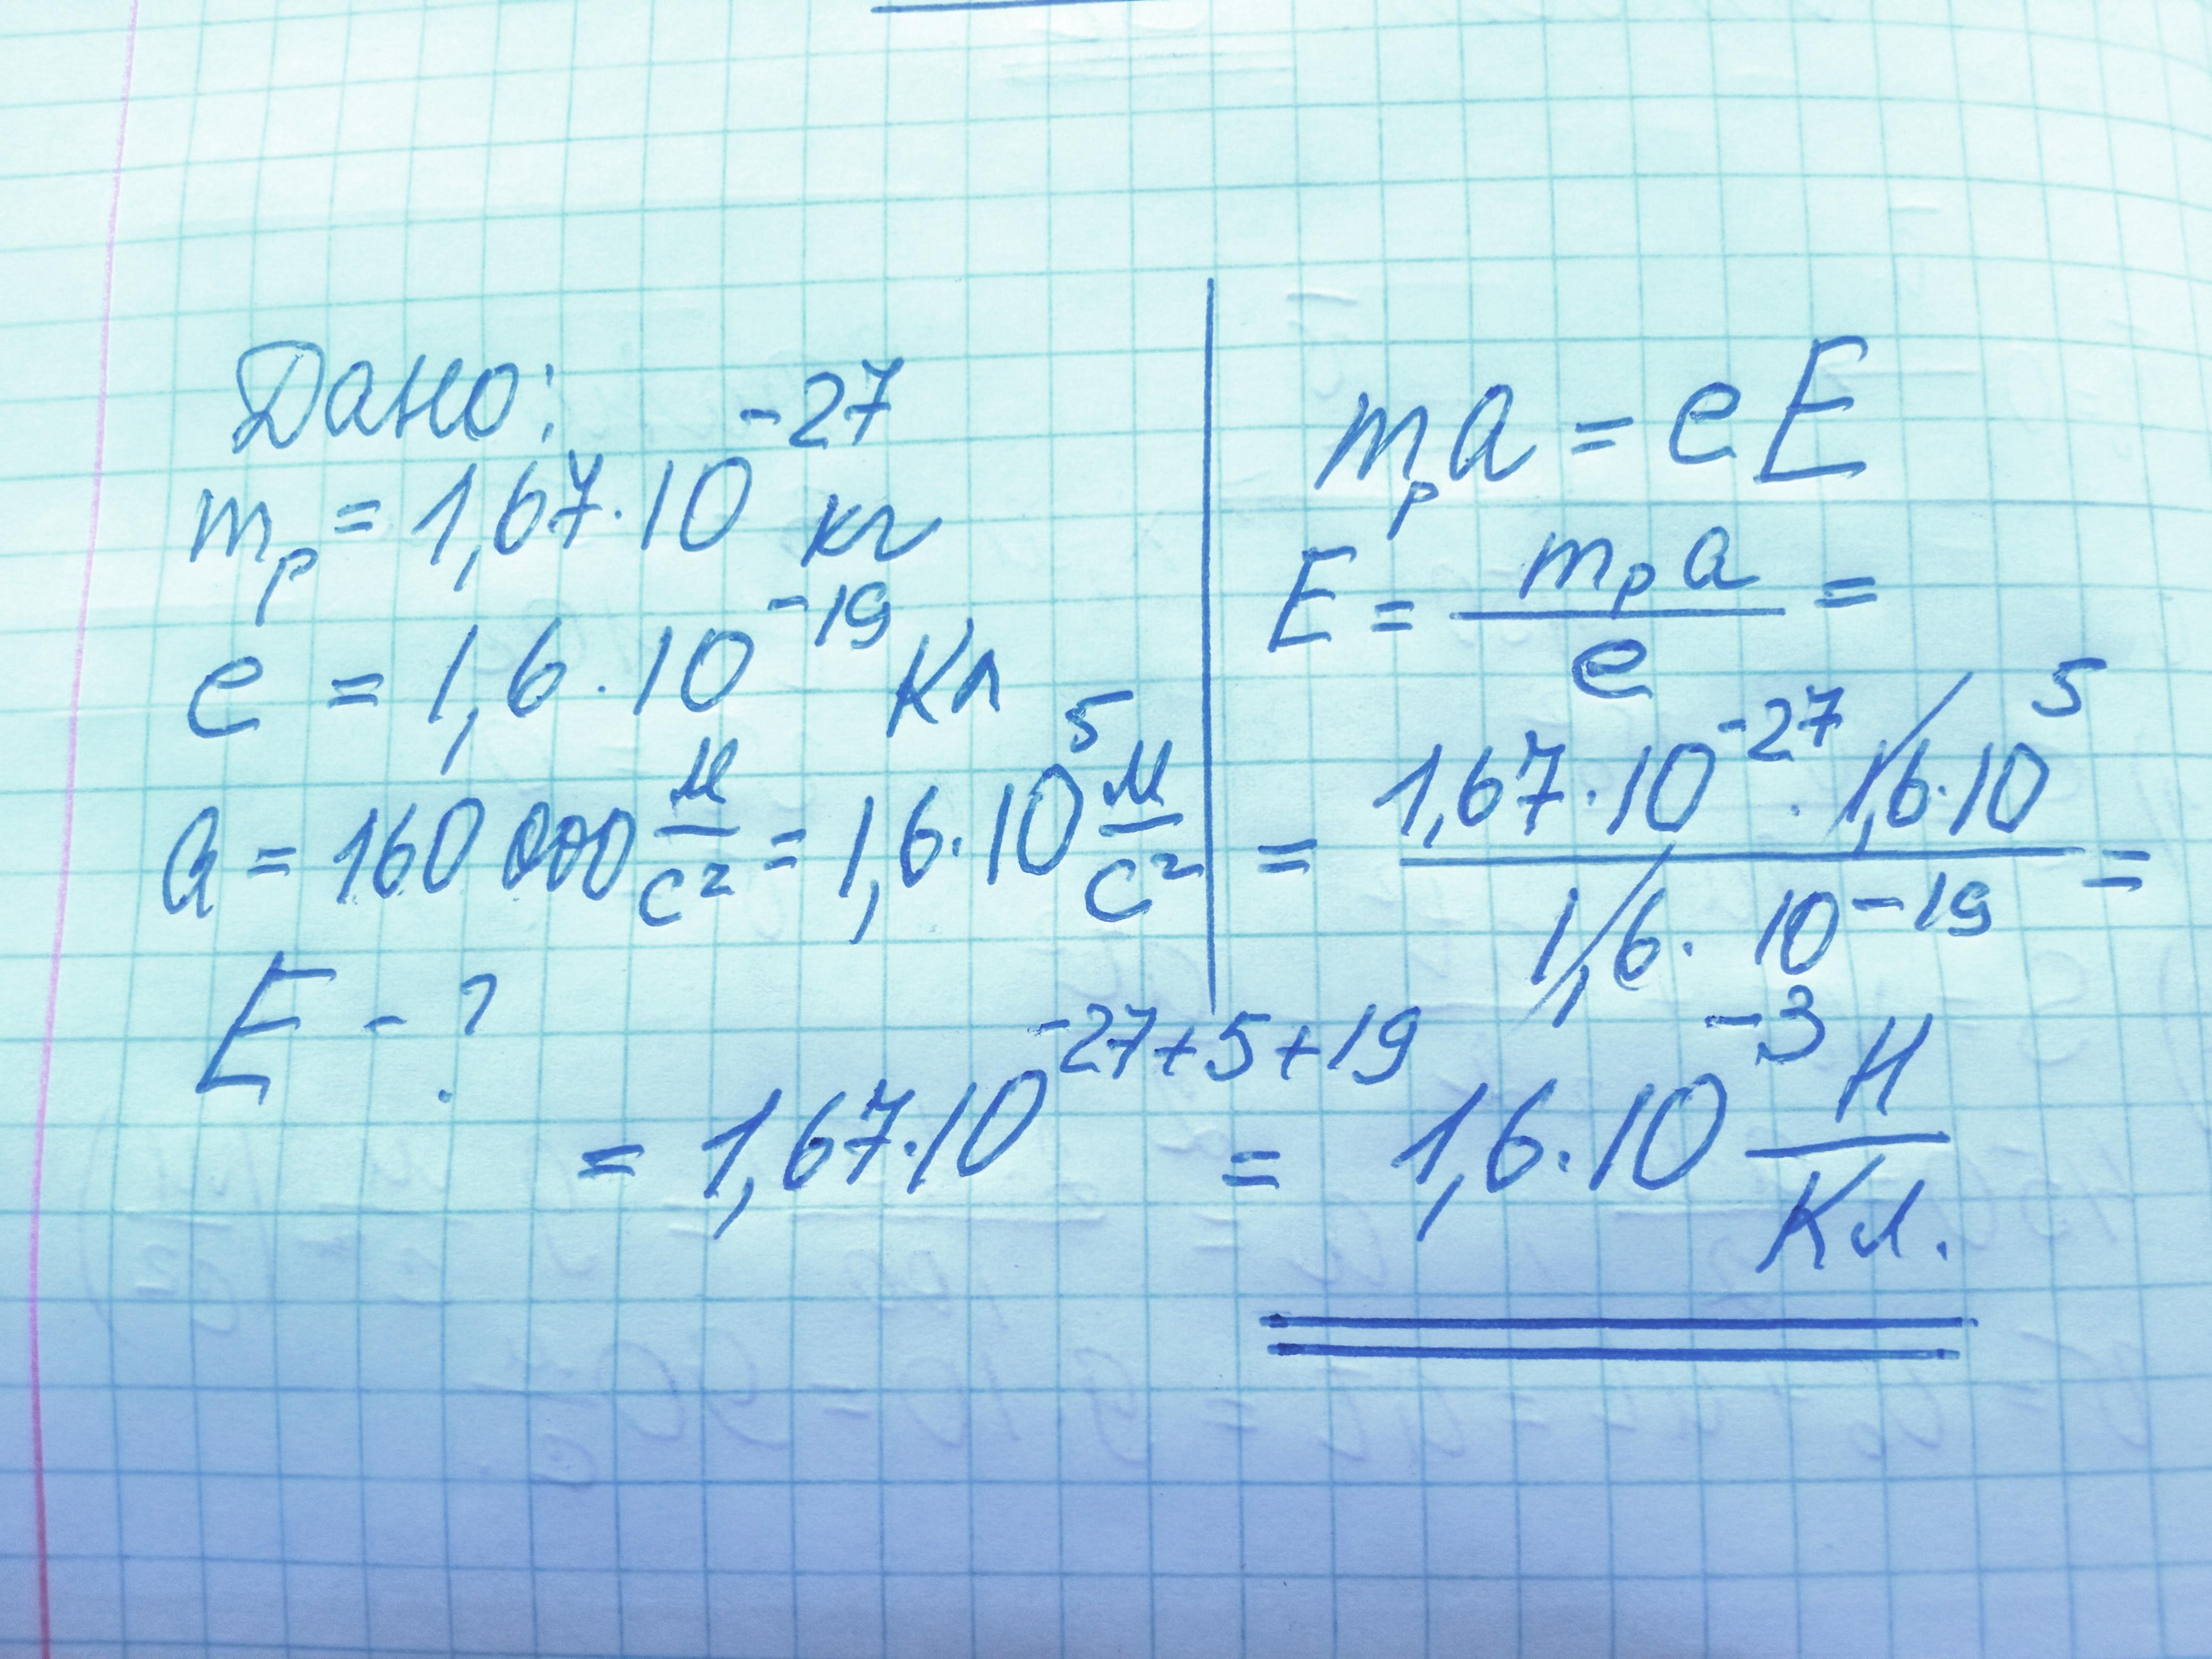 Дано:
mₚ = 1,67·10⁻²⁷ кг
e = 1,6·10⁻¹⁹ Кл
a = 160 000 м/с² = 1,6·10⁵ м/с²
E - ?
mₚa = eE
E = mₚa/e =
= 1,67·10⁻²⁷·1,6·10⁵/1,6·10⁻¹⁹ =
= 1,67·10⁻²⁷⁺⁵⁺¹⁹ = 1,6·10⁻³ Н/Кл.